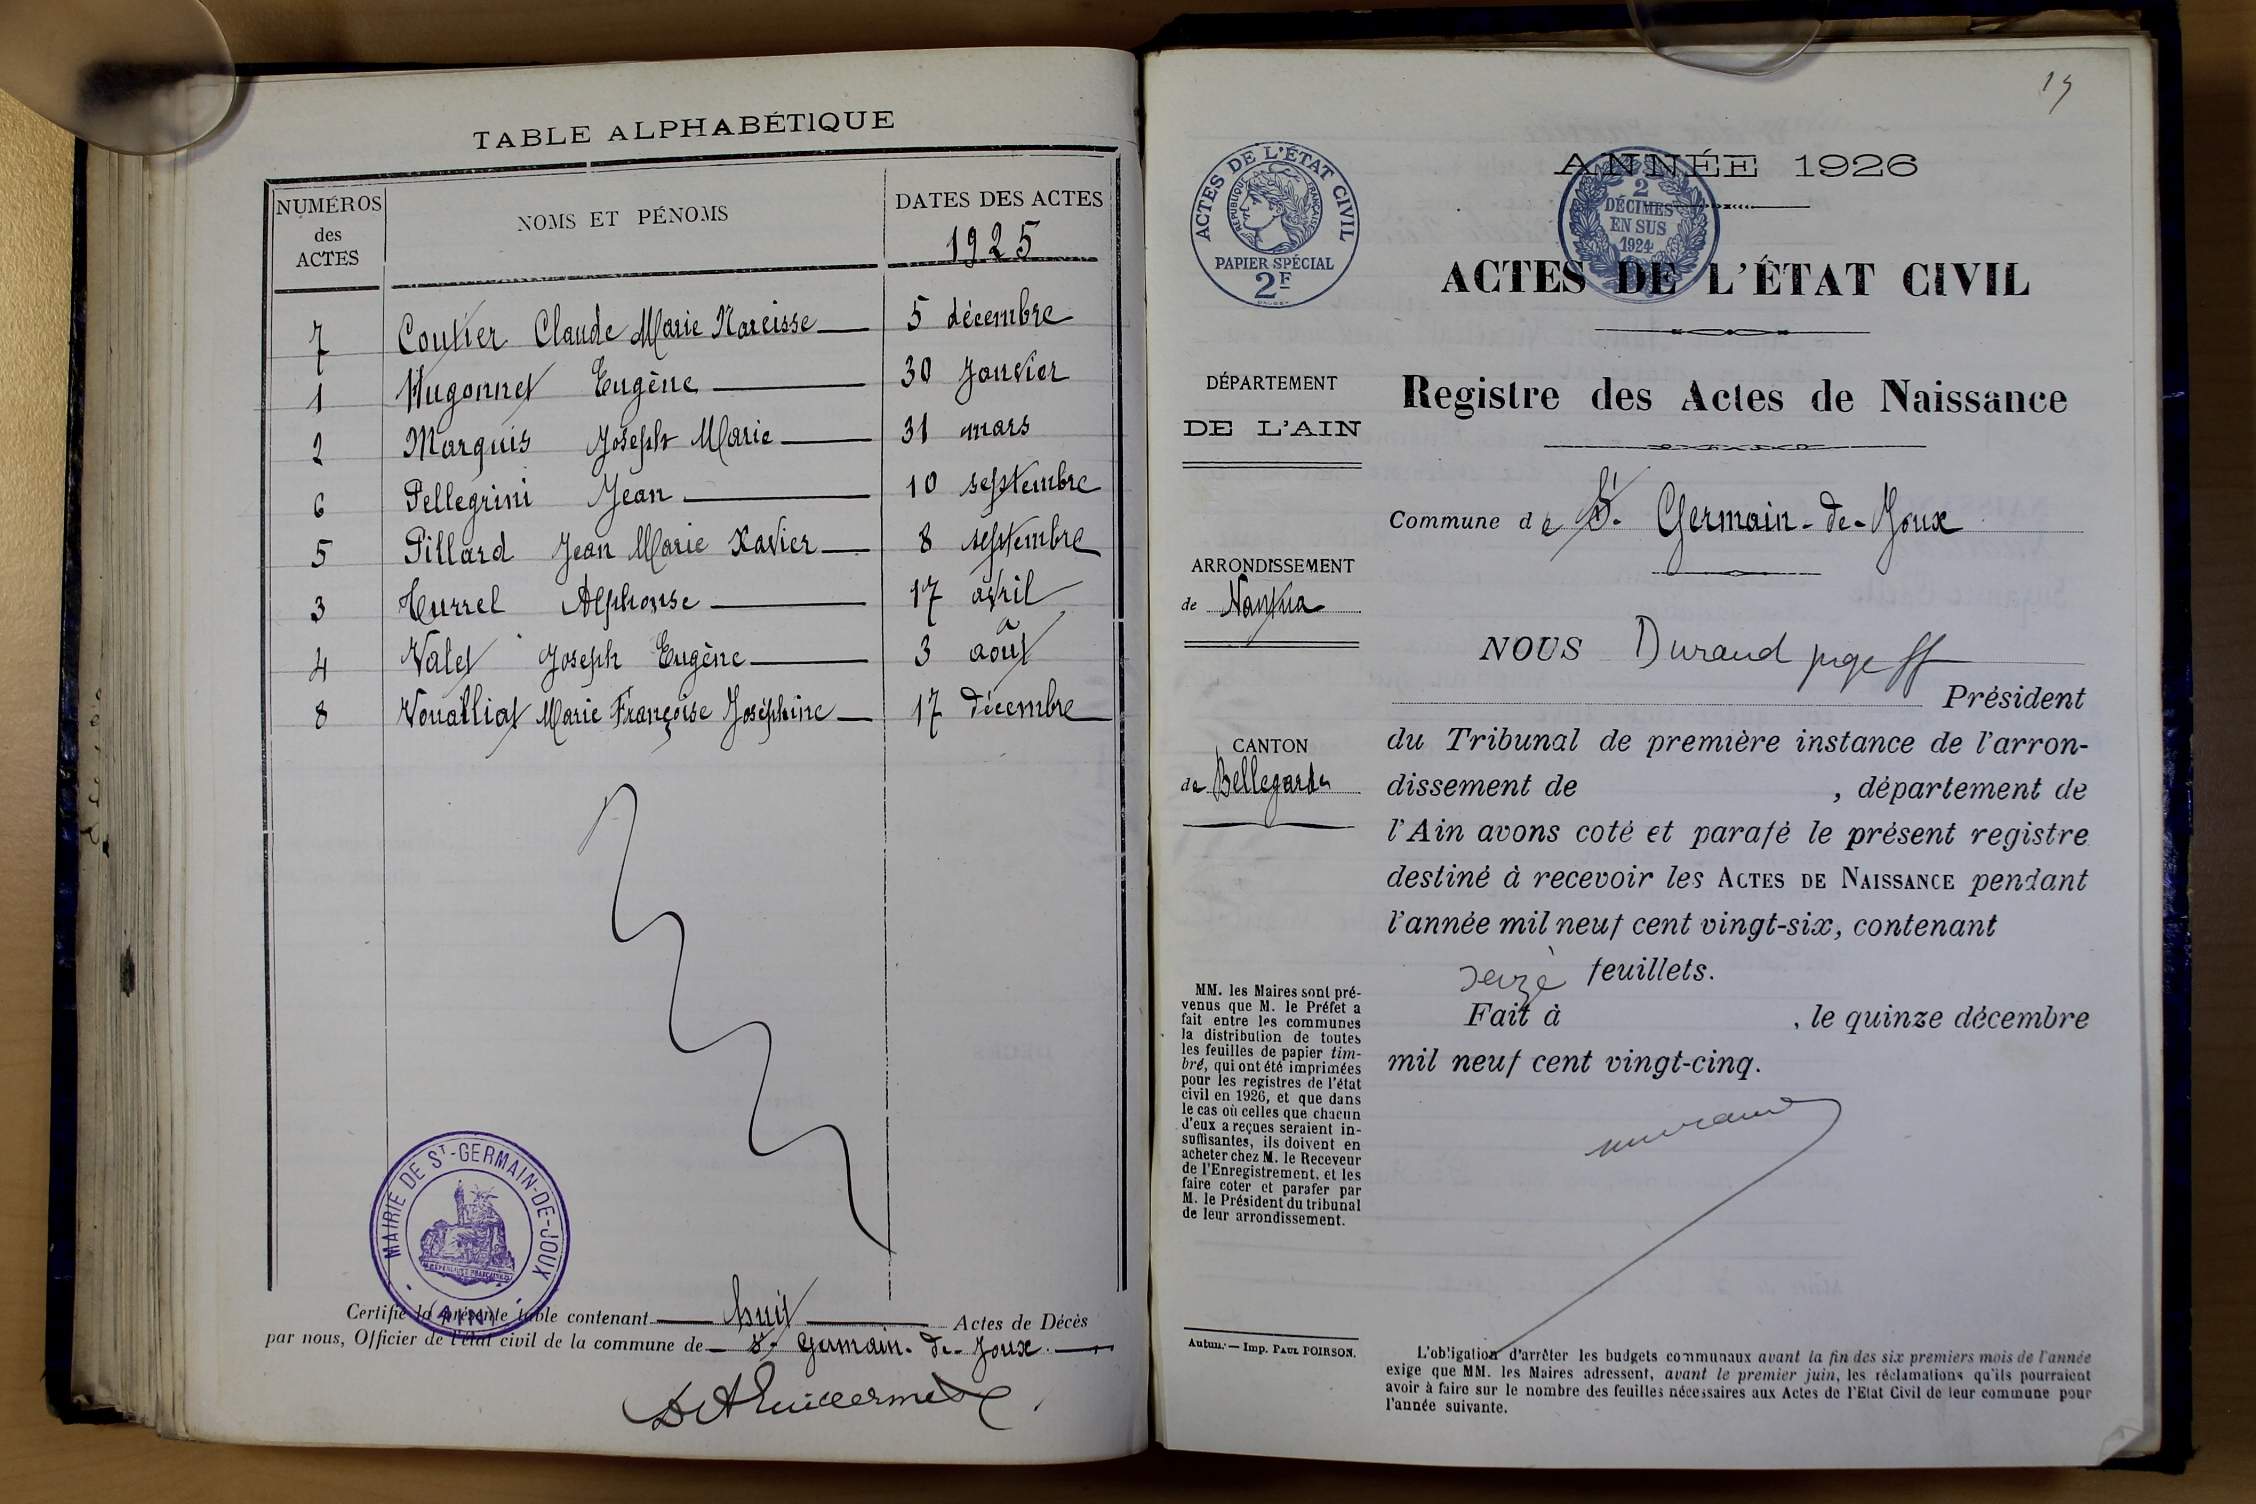 TABLE ALPHABÉTIQUE
NUMÉROS des ACTES
NOMS ET PÉNOMS
DATES DES ACTES
1925
7 Coutier Claude Marie Narcisse 5 décembre
1 Hugonnet Eugène 30 Janvier
2 Marquis Joseph Marie 31 mars
6 Pellegrini Jean 10 septembre
5 Pillard Jean Marie Xavier 8 septembre
3 Turrel Alphonse 17 avril
4 Valet Joseph Eugène 3 août
8 Vouilliat Marie Françoise Joséphine 17 décembre
MAIRIE DE ST-GERMAIN-DE-JOUX
(AIN)
Certifié la présente table contenant huit Actes de Décès
par nous, Officier de l'état civil de la commune de St Germain-de-Joux
19
ACTES DE L'ÉTAT CIVIL
RÉPUBLIQUE FRANÇAISE
PAPIER SPÉCIAL
2F
2
DÉCIMES
EN SUS
1924
ANNÉE 1926
ACTES DE L'ÉTAT CIVIL
DÉPARTEMENT
DE L'AIN
ARRONDISSEMENT
de Nantua
CANTON
de Bellegarde
MM. les Maires sont pré-
venus que M. le Préfet a
fait entre les communes
la distribution de toutes
les feuilles de papier tim-
bré, qui ont été imprimées
pour les registres de l'état
civil en 1926, et que dans
le cas où celles que chacun
d'eux a reçues seraient in-
suffisantes, ils doivent en
acheter chez M. le Receveur
de l'Enregistrement, et les
faire coter et parafer par
M. le Président du tribunal
de leur arrondissement.
Autun. — Imp. PAUL POIRSON.
Registre des Actes de Naissance
Commune de St. Germain-de-Joux
NOUS Durand juge ff
Président
du Tribunal de première instance de l'arron-
dissement de , département de
l'Ain avons coté et parafé le présent registre
destiné à recevoir les ACTES DE NAISSANCE pendant
l'année mil neuf cent vingt-six, contenant
seize feuillets.
Fait à , le quinze décembre
mil neuf cent vingt-cinq.
L'obligation d'arrêter les budgets communaux avant la fin des six premiers mois de l'année
exige que MM. les Maires adressent, avant le premier juin, les réclamations qu'ils pourraient
avoir à faire sur le nombre des feuilles nécessaires aux Actes de l'Etat Civil de leur commune pour
l'année suivante.